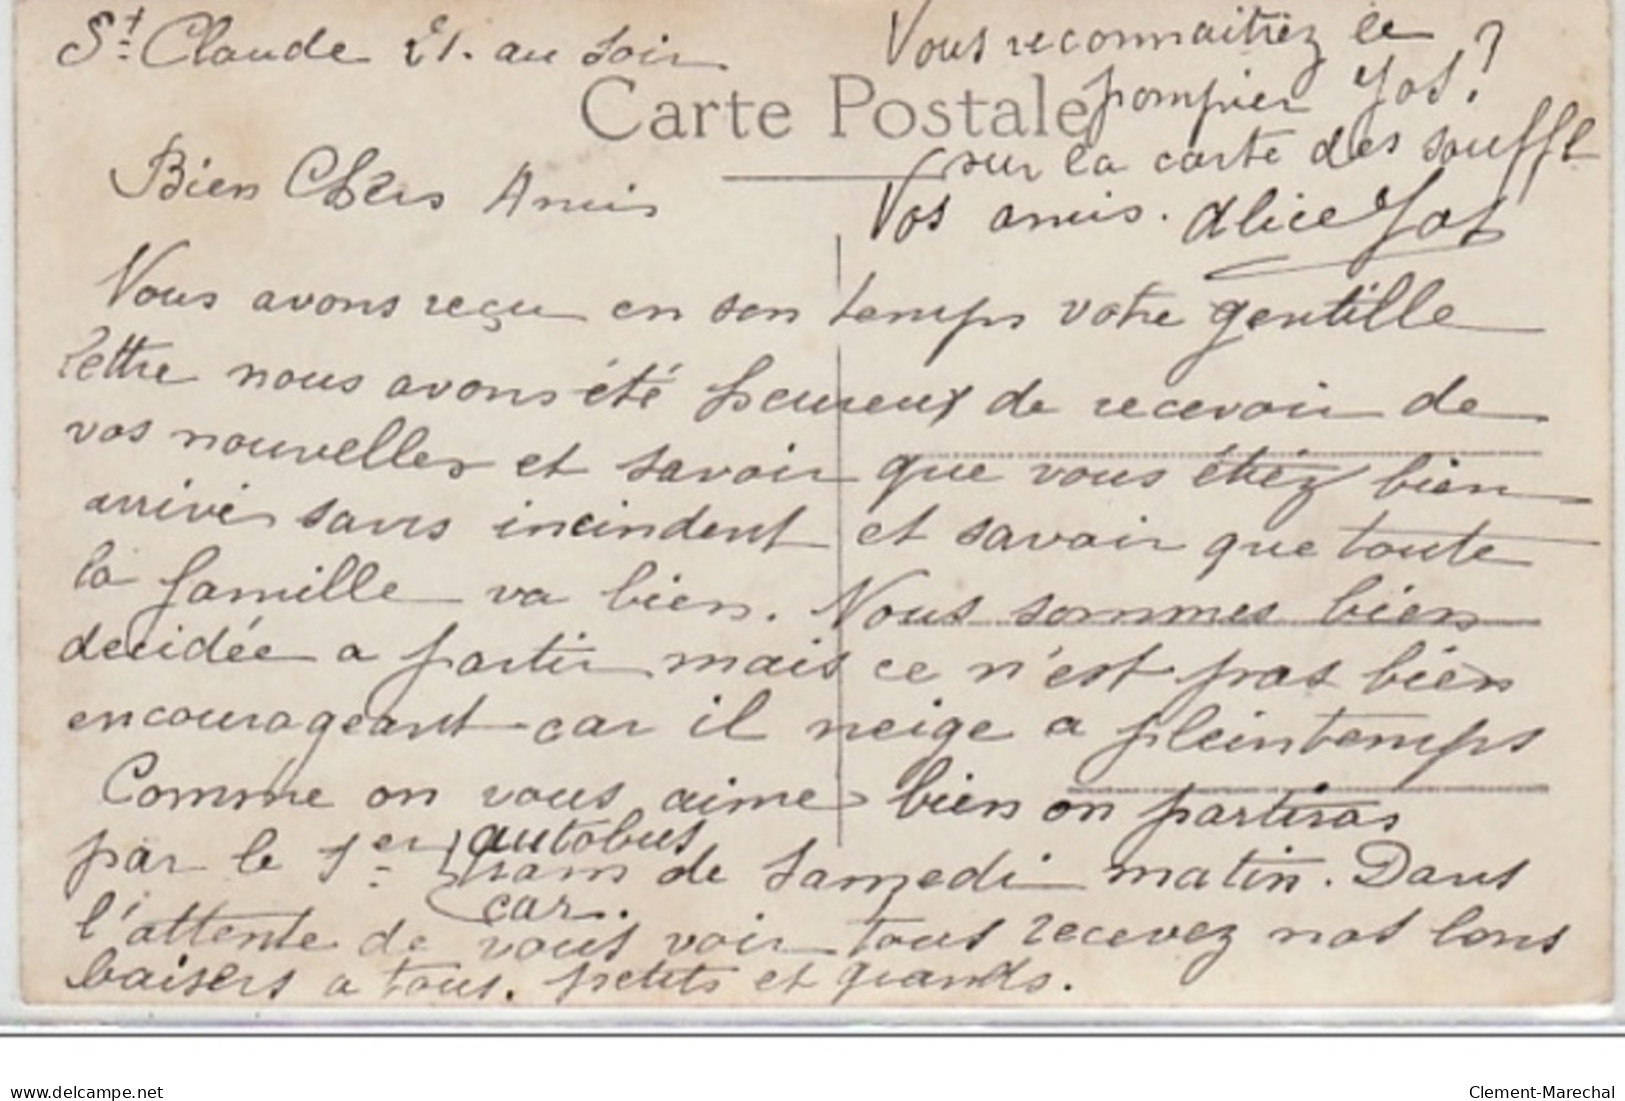 St Claude 21. au soir
Vous reconnaitrez le
pompier Jos?
sur la carte des souffl
Vos amis. Alice Jos
Carte Postale
Bien Chers Amis
Nous avons reçu en son temps votre gentille
lettre nous avons été heureux de recevoir de
vos nouvelles et savoir que vous étiez bien
arrivés sans incindent et savoir que toute
la famille va bien. Nous sommes bien
decidée a partir mais ce n'est pas bien
encourageant car il neige a pleintemps
Comme on vous aime bien on partiras
par le 1er autobus
tram de Samedi matin. Dans
car.
l'attente de vous voir tous recevez nos bons
baisers a tous. petits et grands.
delcampe.net
Clement-Marechal